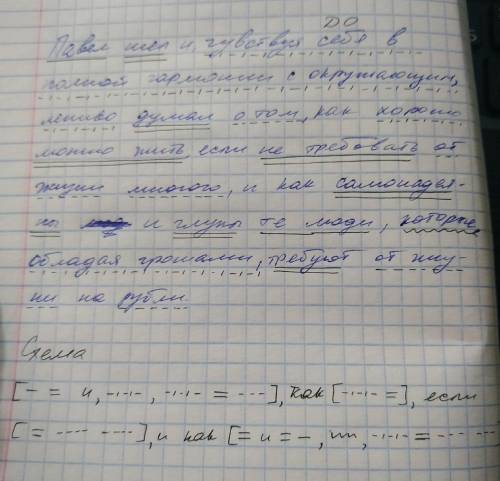 ДО
Павел шел и, чувствуя себя в
полной гармонии с окружающим,
лениво думал о том, как хорошо
можно жить, если не требовать от
жизни многого, и как самонадея-
ны и глупы те люди, которые
обладая грошами, требуют от жиз-
ни на рубли.
Схема
[– = и, –·–·–, –·–·– = – – –], как [–·–·– =], если
[= – – – – – –], и как [= и = –, ~~, –·–·– = – – – – – –